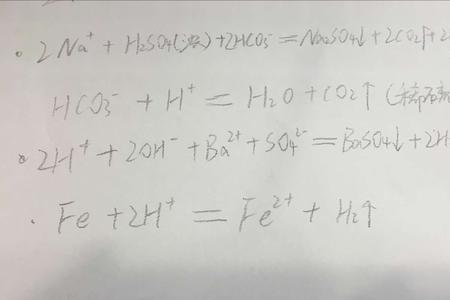 · 2Na⁺ + H₂SO₄(浓) + 2HCO₃⁻ = Na₂SO₄↓ + 2CO₂↑ + 2
HCO₃⁻ + H⁺ = H₂O + CO₂↑ (稀硫
· 2H⁺ + 2OH⁻ + Ba²⁺ + SO₄²⁻ = BaSO₄↓ + 2H
· Fe + 2H⁺ = Fe²⁺ + H₂↑